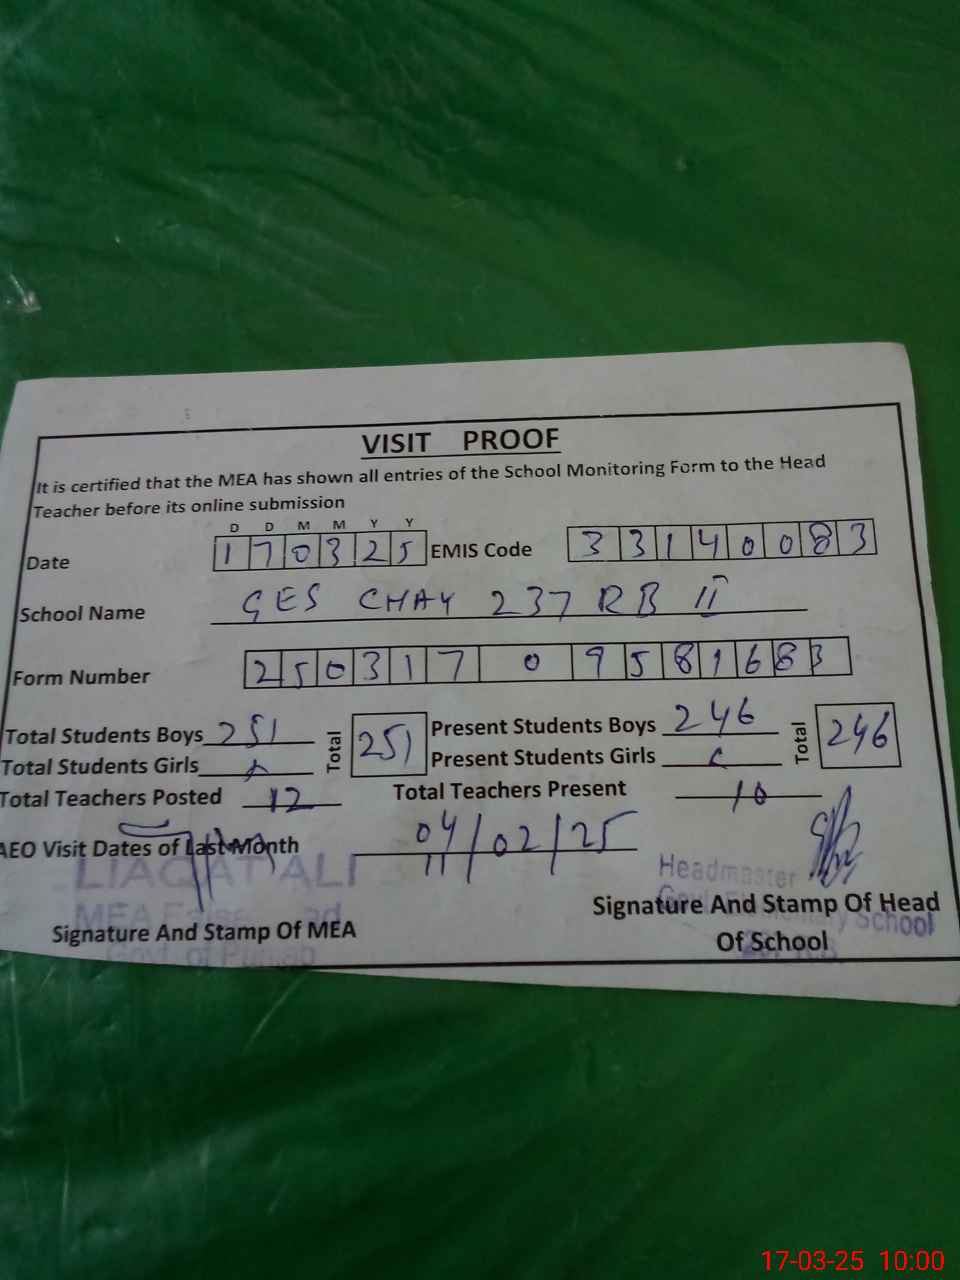 VISIT PROOF
It is certified that the MEA has shown all entries of the School Monitoring Form to the Head
Teacher before its online submission
D D M M Y Y
Date 170325 EMIS Code 33140083
School Name GES CHAK 237 RB II
Form Number 250317 0 9581683
Total Students Boys 251 Total 251 Present Students Boys 246 Total 246
Total Students Girls Present Students Girls
Total Teachers Posted 12 Total Teachers Present 10
AEO Visit Dates of Last Month 04/02/25
LIAQAT ALI
MEA
Govt. of Punjab
Headmaster
School
Signature And Stamp Of MEA
Signature And Stamp Of Head
Of School
17-03-25 10:00